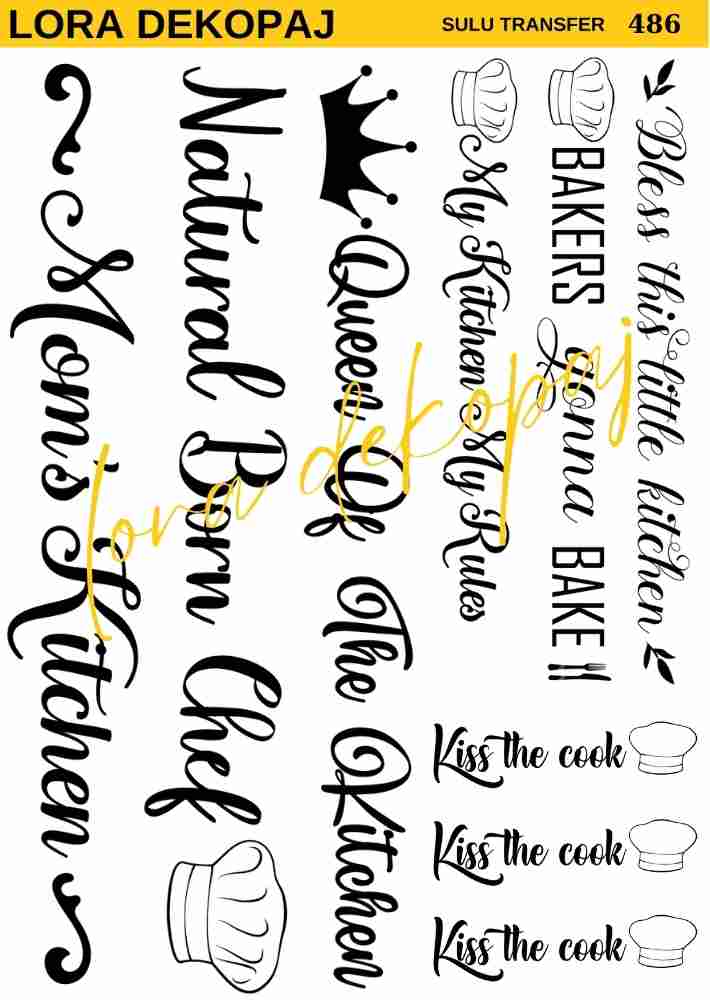 LORA DEKOPAJ
SULU TRANSFER 486
Bless this little kitchen
BAKERS
gonna
BAKE
My Kitchen My Rules
Queen Of The Kitchen
Natural Born Chef
Mom's Kitchen
Kiss the cook
Kiss the cook
Kiss the cook
lora dekopaj